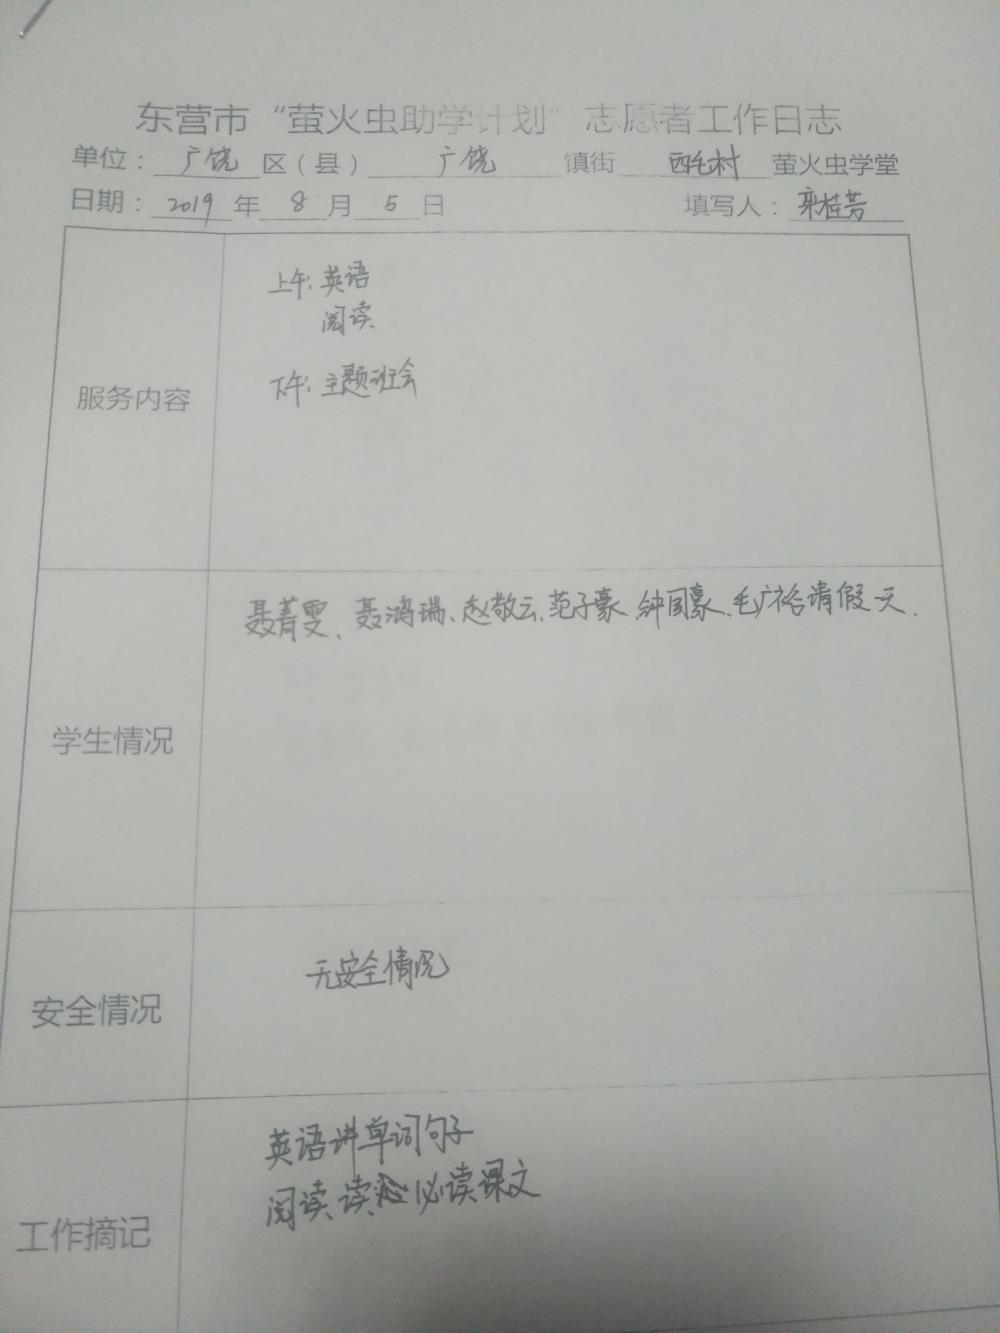 东营市“萤火虫助学计划”志愿者工作日志
单位：广饶区（县）广饶镇街西毛村萤火虫学堂
日期：2019年8月5日 填写人：栾桂芳
服务内容
上午：英语
阅读
下午：主题班会
学生情况
聂菁雯、聂鸿瑞、赵敬云、范子豪、钟国豪、毛广裕请假一天.
安全情况
无安全情况
工作摘记
英语讲单词句子
阅读、读必读课文